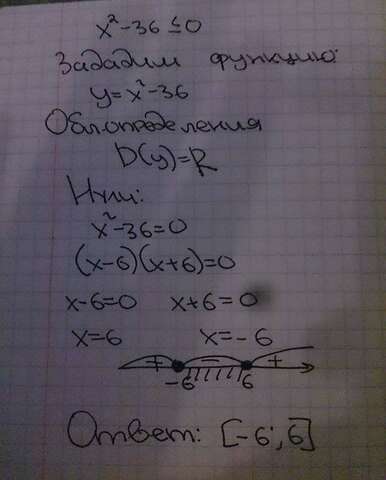 x²-36≤0
Зададим функцию:
y=x²-36
Обл.определения
D(y)=R
Нули:
x²-36=0
(x-6)(x+6)=0
x-6=0 x+6=0
x=6 x=-6
+ - +
-6 6
Ответ: [-6;6]